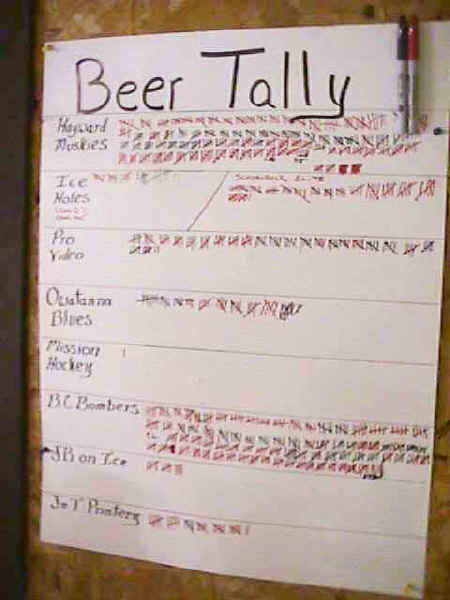 Beer Tally
Hayward
Muskies
Ice
Holes
Pro
Video
Owatanna
Blues
Mission
Hockey
B.C. Bombers
JR on Ice